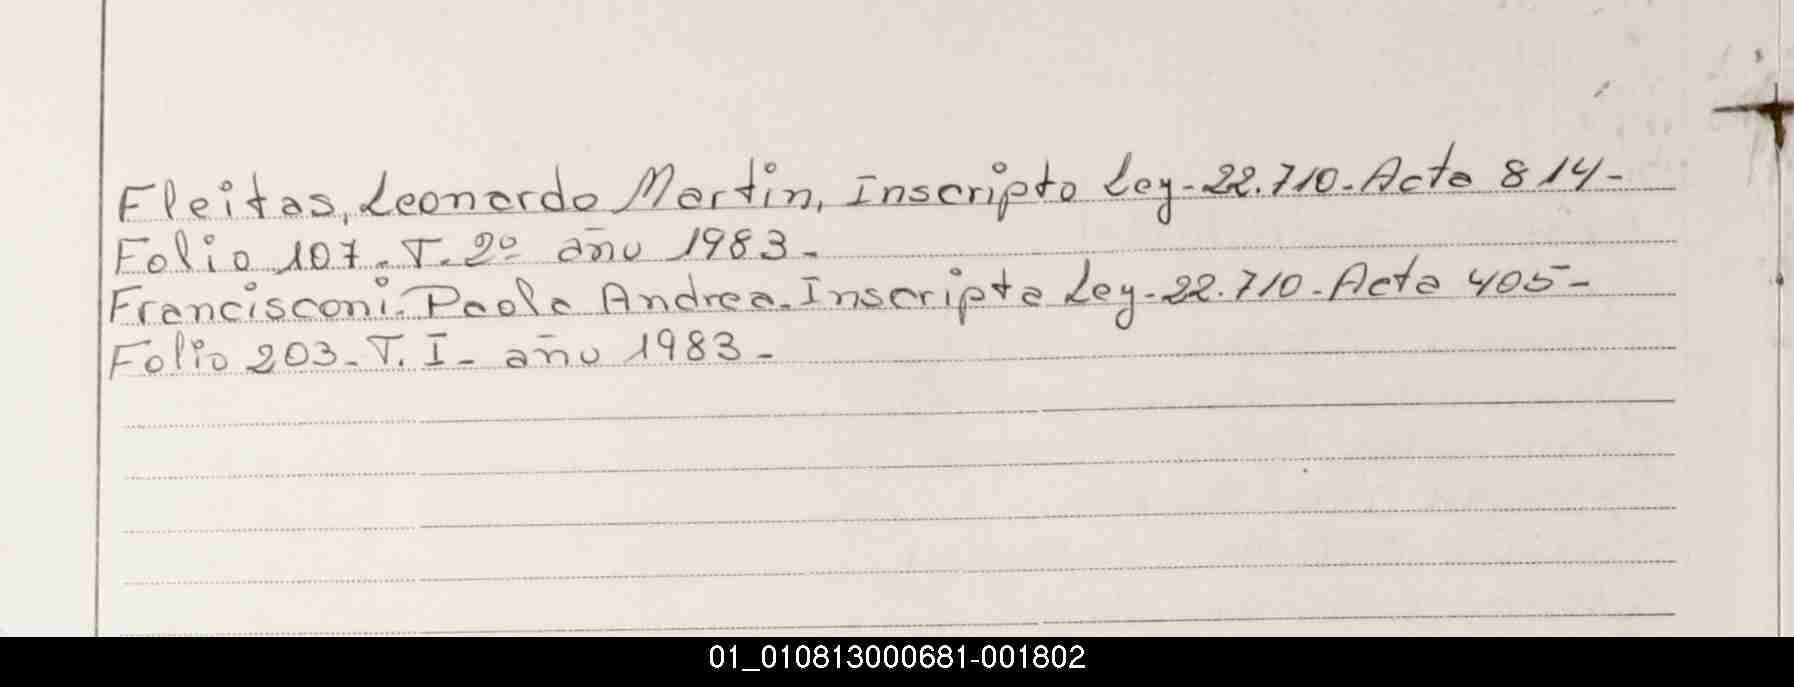 Fleitas, Leonardo Martin, Inscripto Ley-22.710-Acta 814-
Folio 107-T-2º año 1983-
Francisconi-Paola Andrea-Inscripta Ley-22.710-Acta 405-
Folio 203-T. I- año 1983-
01_010813000681-001802